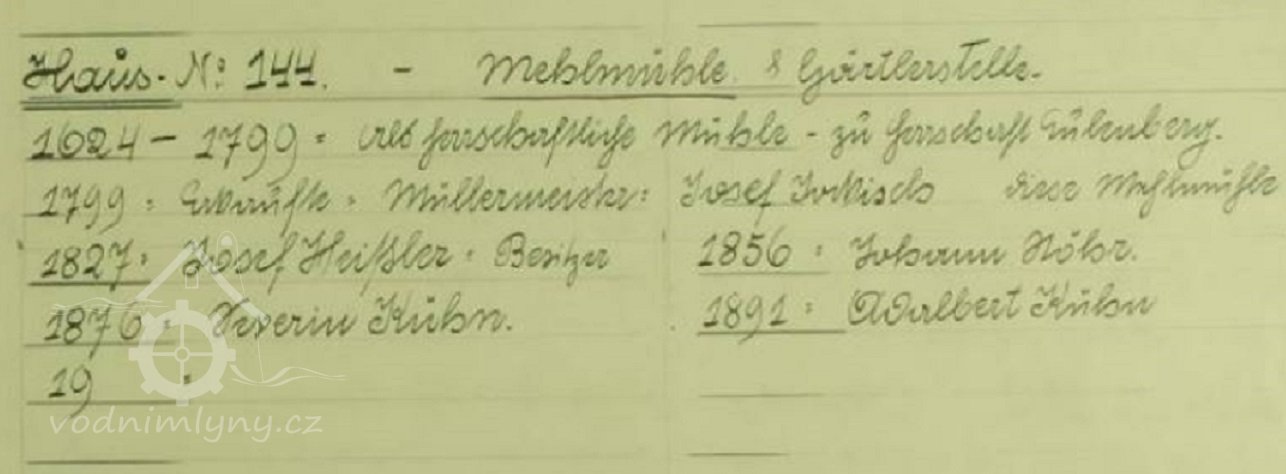 Haus. No: 144. - Mehlmühle & Gärtlerstelle.
1624 - 1799 = Als herrschaftliche Mühle - zu Herrschaft Eulenberg.
1799 = Erkaufte = Müllermeister: Josef diese Mehlmühle
1827 = Josef Heißler = Besitzer 1856 = Johann Röhr.
1876 = Severin Kühn. 1891 = Adalbert Kühn
19 =
vodnimlyny.cz